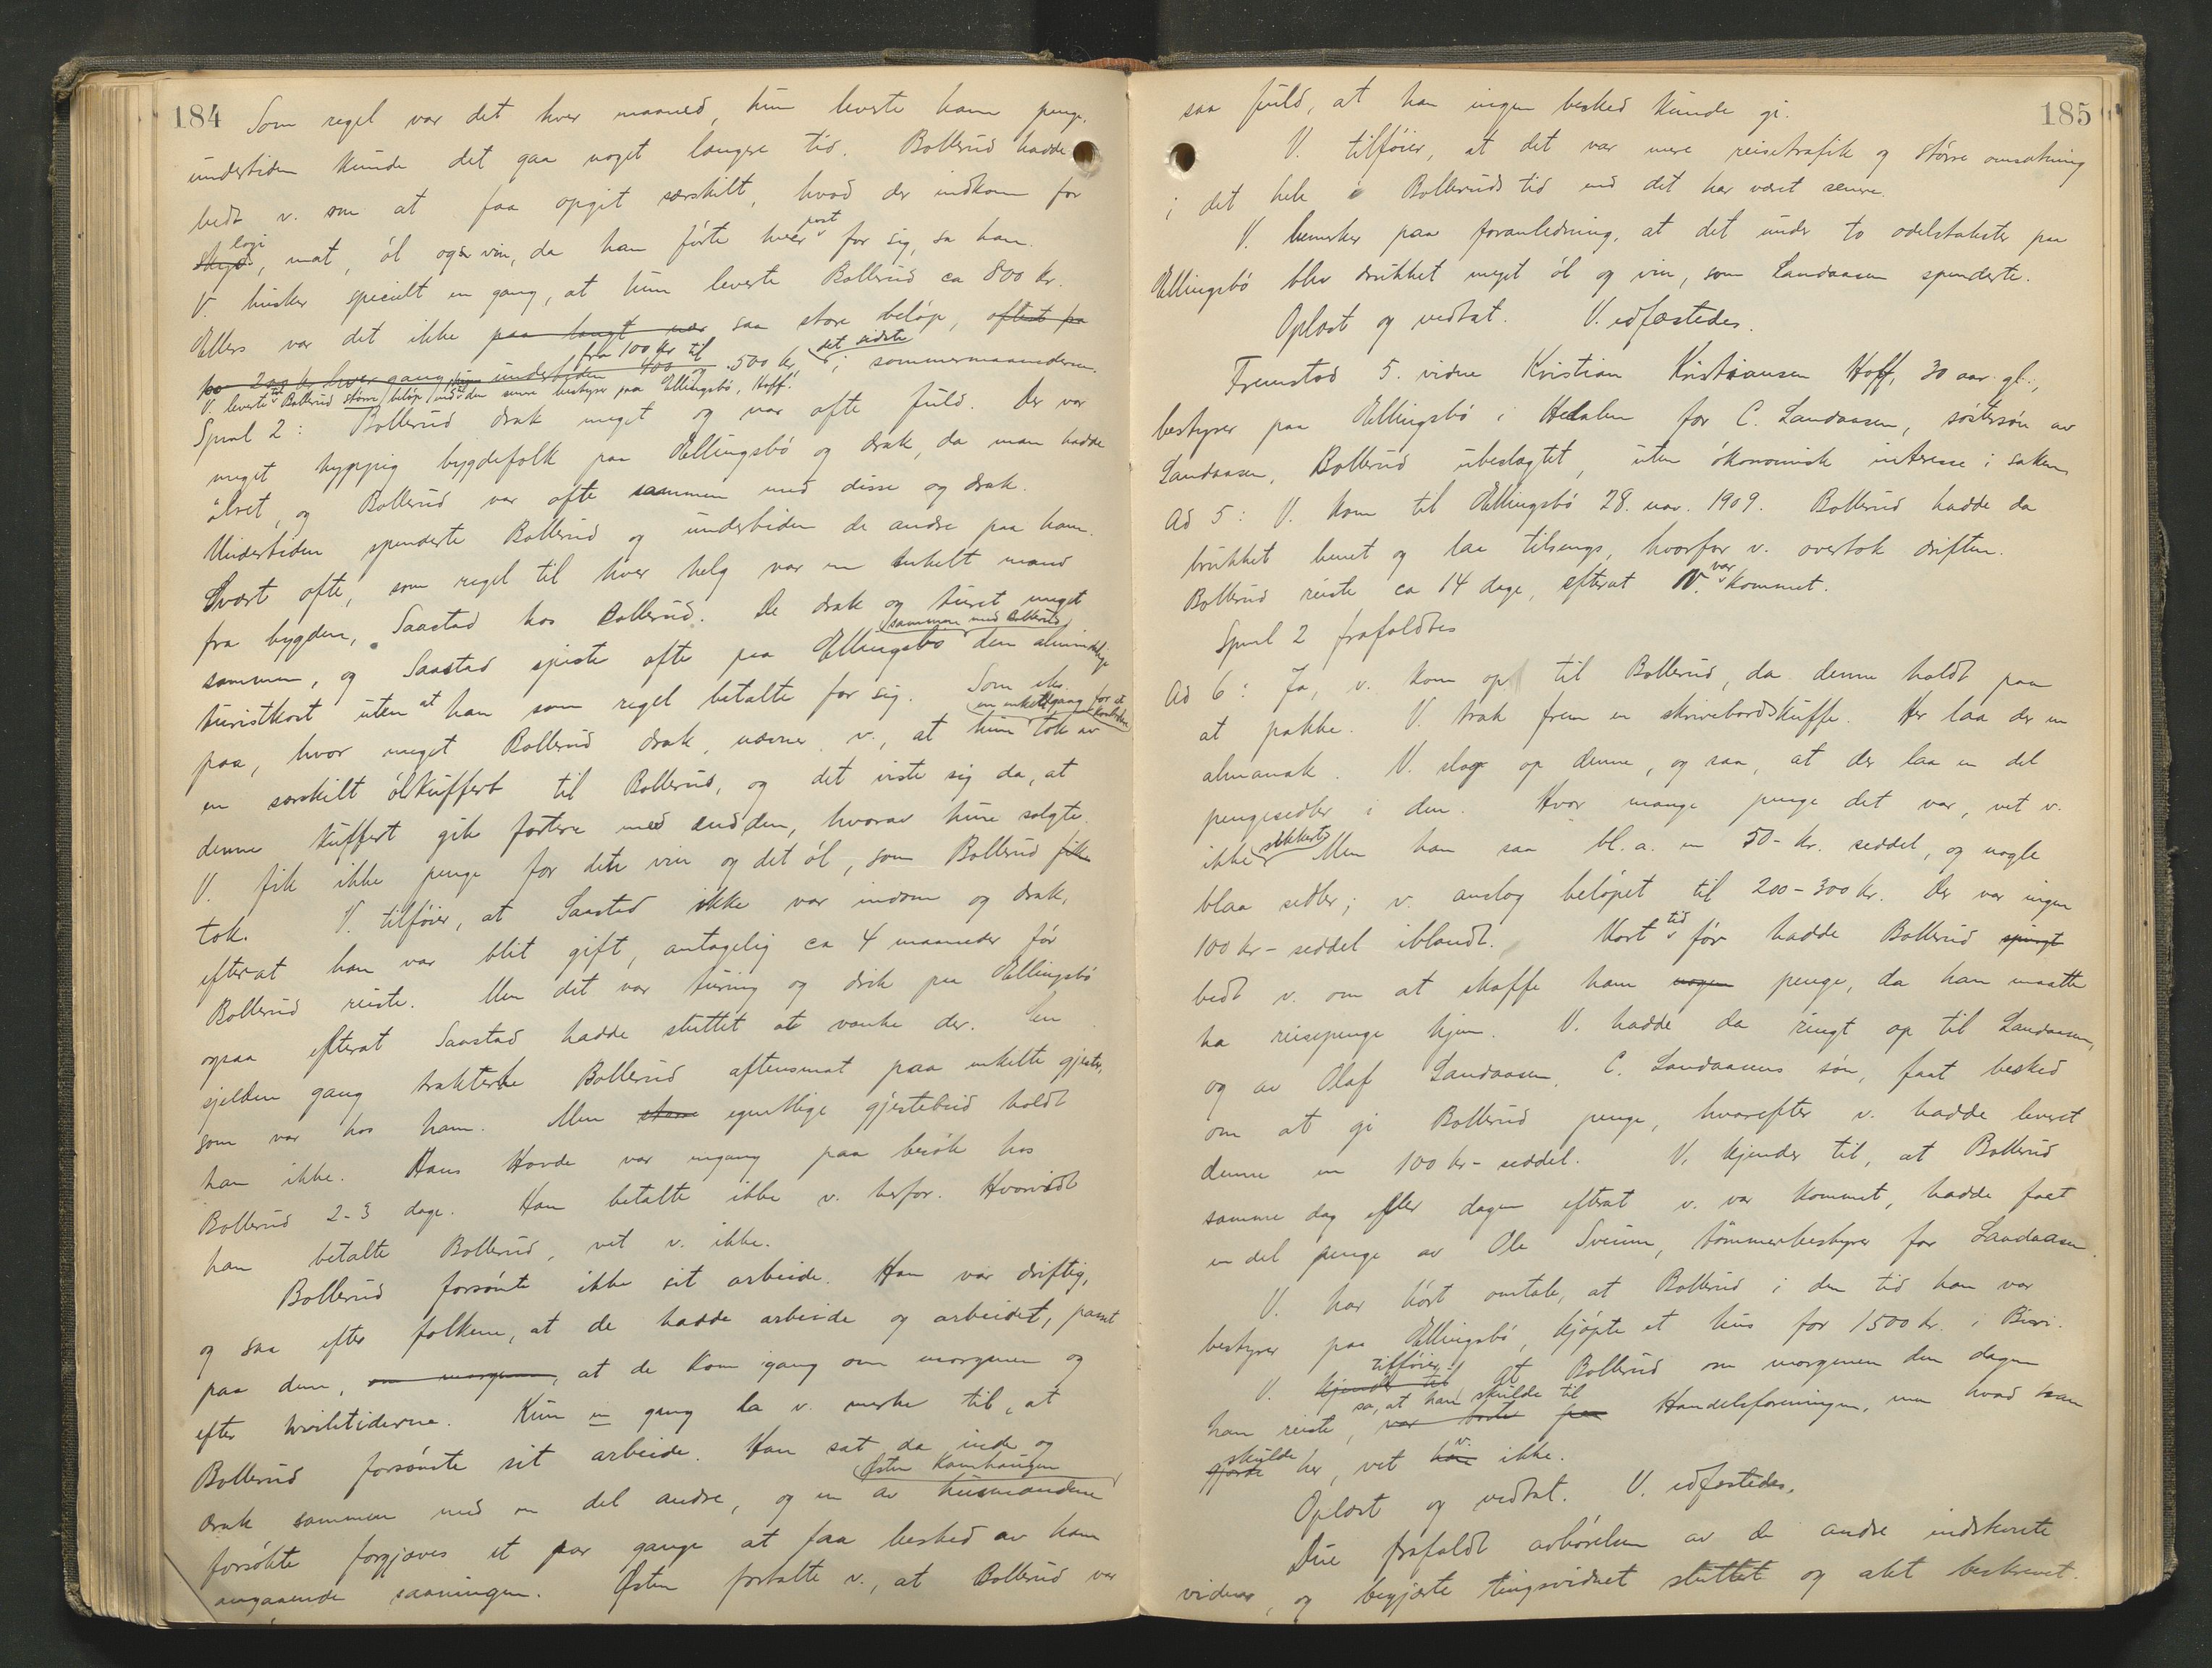 184
Som regel var det hver maaned, hun leverte ham penge,
undertiden kunde det gaa noget længere tid. Bollerud hadde
bedt v. om at faa opgit særskilt, hvad der indkom for
skyds logi, mat, öl og vin, da han förte hver post for sig, sa han.
V. husker specielt en gang, at hun leverte Bollerud ca 800 kr.
Ellers var det ikke paa langt nær saa store belöp, oftest fra
100 200 kr. hver gang, undertiden 400 og fra 100 kr til 500 kr. det sidste i sommermaanederne.
V. leverte til Bollerud större belöp end den senere bestyrer paa Ellingsbö, Hoff.
Spml 2: Bollerud drak meget og var ofte fuld. Der var
meget hyppig bygdefolk paa Ellingsbö og drak, da man hadde
ölret, og Bollerud var ofte sammen med disse og drak.
Undertiden spenderte Bollerud og undertiden de andre paa ham.
Svært ofte, som regel til hver helg var en enkelt mand
fra bygden, Saastad hos Bollerud. De drak og turet meget
sammen, og Saastad spiste ofte paa Ellingsbö sammen med Bollerud den almindelige
turistkost uten at han som regel betalte for sig. Som eks.
paa, hvor meget Bollerud drak, nævner v., at hun en enkelt gang for at kontrollere tok av
en særskilt ölkuffert til Bollerud, og det viste sig da, at
denne kuffert gik fortere med end den, hvorav hun solgte.
V. fik ikke penge for den vin og det öl, som Bollerud fik
tok. V. tilföier, at Saastad ikke var indom og drak,
efterat han var blit gift, antagelig ca 4 maaneder för
Bollerud reiste. Men det var turing og drik paa Ellingsbö
ogsaa efterat Saastad hadde sluttet at vanke der. En
sjelden gang trakterte Bollerud aftensmat paa enkelte gjester,
som var hos ham. Men store egentlige gjestebud holdt
han ikke. Hans Hovde var engang paa besök hos
Bollerud 2-3 dage. Han betalte ikke v. herfor. Hvorvidt
han betalte Bollerud, vet v. ikke.
Bollerud forsömte ikke sit arbeide. Han var driftig,
og saa efter folkene, at de hadde arbeide og arbeidet, passet
paa dem, om morgenen, at de kom igang om morgenen og
efter hviletiderne. Kun en gang la v. merke til, at
Bollerud forsömte sit arbeide. Han sat da inde og
drak sammen med en del andre, og en av husmændene Østen Kamhaugen
forsökte forgjæves et par gange at faa besked av ham
angaaende saaningen. Østen fortalte v., at Bollerud var
185
saa fuld, at han ingen besked kunde gi.
V. tilföier, at det var mere reisetrafik og större omsætning
i det hele i Bolleruds tid end det har været senere.
V. bemerker paa foranledning, at det under to odelstakster paa
Ellingsbö blev drukket meget öl og vin, som Landaasen spenderte.
Oplæst og vedtat. V. edfæstedes.
Fremstod 5. vidne Kristian Kristiansen Hoff, 30 aar gl.,
bestyrer paa Ellingsbö i Hedalen for C. Landaasen, söstersön av
Landaasen, Bollerud ubeslegtet, uten ökonomisk interesse i saken.
Ad 5: V. kom til Ellingsbö 28. nov. 1909. Bollerud hadde da
brukket benet og laa tilsengs, hvorfor v. overtok driften.
Bollerud reiste ca 14 dage, efterat V. var kommet.
Spml 2 frafaldtes
Ad 6: Ja, v. kom op til Bollerud, da denne holdt paa
at pakke. V. trak frem en skrivebordskuffe. Her laa der en
almanak. V. slog op denne, og saa, at der laa en del
pengesedler i den. Hvor mange penge det var, vet v.
ikke sikkert. Men han saa bl.a. en 50-kr. seddel, og nogle
blaa sedler; v. anslog belöpet til 200-300 kr. Der var ingen
100 kr-seddel iblandt. Kort tid för hadde Bollerud spurgt
bedt v. om at skaffe ham nogen penge, da han maatte
ha reisepenge hjem. V. hadde da ringt op til Landaasen,
og av Olaf Landaasen, C. Landaasens sön, faat besked
om at gi Bollerud penge, hvorefter v. hadde leveret
denne en 100 kr-seddel. V. kjender til, at Bollerud
samme dag eller dagen efterat v. var kommet, hadde faat
en del penge av Ole Sveum, tömmerbestyrer for Landaasen.
V. har hört omtale, at Bollerud i den tid han var
bestyrer paa Ellingsbö, kjöpte et hus for 1500 kr. i Biri.
V. kjender til tilföier, at Bollerud om morgenen den dagen
han reiste, var borte paa sa, at han skulde til Handelsforeningen, men hvad han
gjorde skulde her, vet han v. ikke.
Oplæst og vedtat. V. edfæstedes.
Due frafaldt avhörelsen av de andre indstevnte
vidner, og begjærte tingsvidnet sluttet og alt beskrevet.